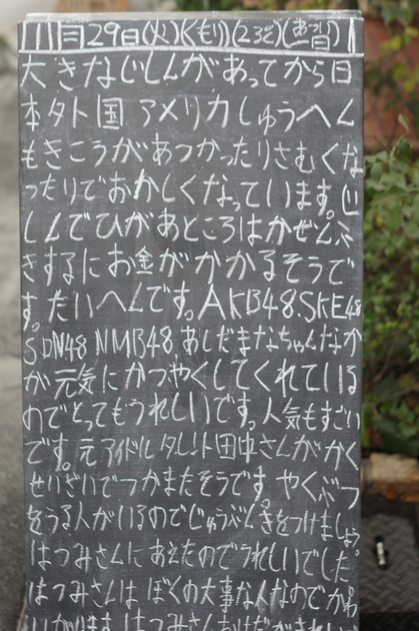 11月29日(火)(くもり)(23ど)(あつい日)
大きなじしんがあってから日
本タト国アメリカしゅうへん
もきこうがあつかったりさむくな
ったりでおかしくなっています。じ
しんでひがあところはかぜんふ
きするにお金がかかるそうで
す。たいへんです。AKB48.SKE48
SDN48 NMB48 あしだまなちゃんなか
が元気にかつやくしてくれている
のでとってもうれしいです。人気もすごい
です。元アイドルタレント田中さんがかく
せいざいでつかまたそうです。やくぶつ
をうる人がいるのでじゅうぶんきをつけましょう。
はつみさんにあえたのでうれしいでした。
はつみさんはぼくの大事な人なのでかわ